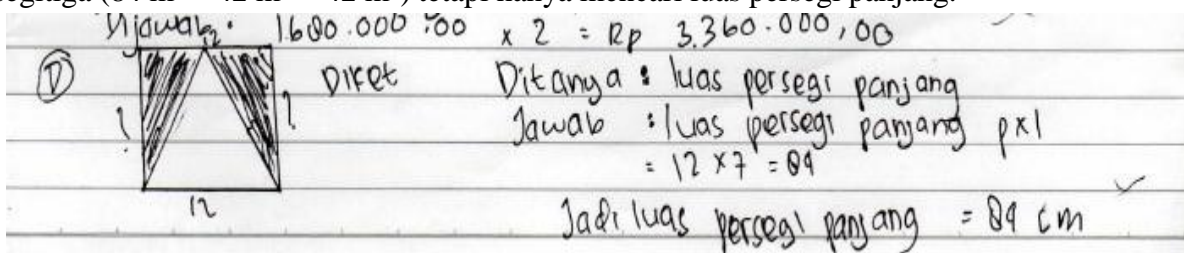 (84 m² – 42 m²) tetapi hanya mencari luas persegi panjang.
Dijawab: 1.680.000,00 x 2 = Rp 3.360.000,00
D 12 Diket Ditanya : luas persegi panjang
? ? Jawab : luas persegi panjang p x l
= 12 x 7 = 84
12
Jadi luas persegi panjang = 84 cm